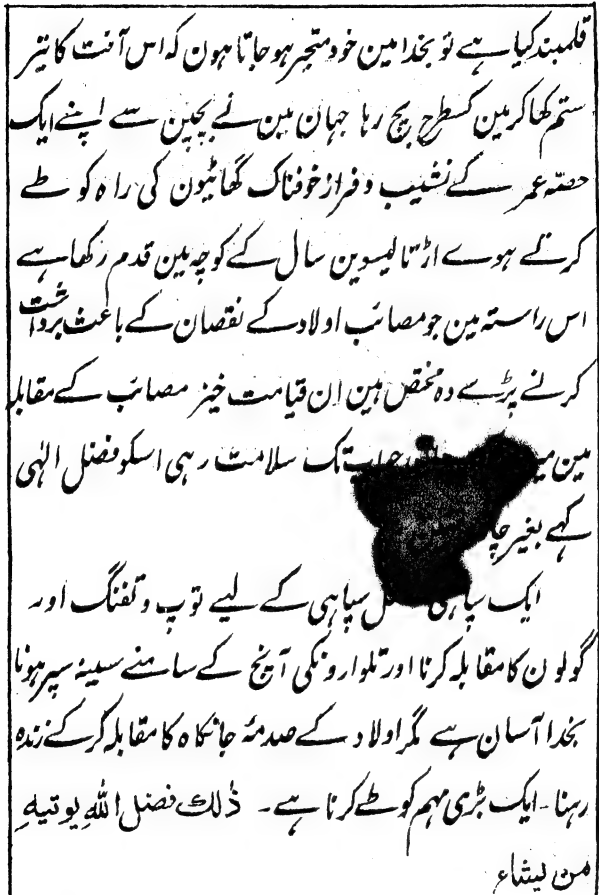 قلمبند کیا ہے تو بخدا مین خود متحیر ہو جاتا ہون کہ اس آفت کا تیر
ستم کھا کر مین کسطرح بچ رہا جہان مین نے بچپن سے اپنے ایک
حصّہ عمر کے نشیب و فراز خوفناک گھاٹیون کی راہ کو طے
کرتے ہوے اڑتالیسوین سال کے کوچہ مین قدم رکھا ہے
اس راستہ مین جو مصائب اولاد کے نقصان کے باعث برداشت
کرنے پڑے وہ مختص ہین ان قیامت خیز مصائب کے مقابلہ
مین تک سلامت رہی اسکو فضل الٰہی
کہے بغیر
ایک سپاہی کے لیے توپ و تفنگ اور
گولون کا مقابلہ کرنا اور تلوارونکی آنچ کے سامنے سینہ سپر ہونا
بخدا آسان ہے مگر اولاد کے صدمۂ جانکاہ کا مقابلہ کر کے زندہ
رہنا۔ ایک بڑی مہم کو طے کرنا ہے۔ ذٰلك فضل اللهِ یوتیهِ
من یشاء